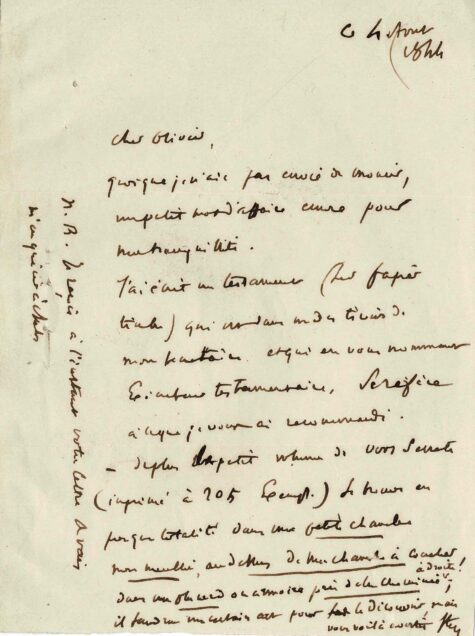 4 Août
1844
Cher Olivier,
quoique je n'aie pas envie de mourir,
un petit mot d'affaire encore pour
ma tranquillité.
J'ai écrit un testament (sur papier
timbré) qui est dans un des tiroirs de
mon secrétaire et qui en vous nommant
Exécuteur testamentaire, se réfère
à ce que je vous ai recommandé.
– de plus le petit volume de vers secrets
(imprimé à 205 Exempl.) se trouve en
presque totalité dans une petite chambre
non meublée, au dessus de ma chambre à coucher
à droite!
dans un placard ou armoire près de la cheminée;
il faudra un certain art pour le découvrir, mais
vous voilà averti
N. B. à l'instant votre lettre